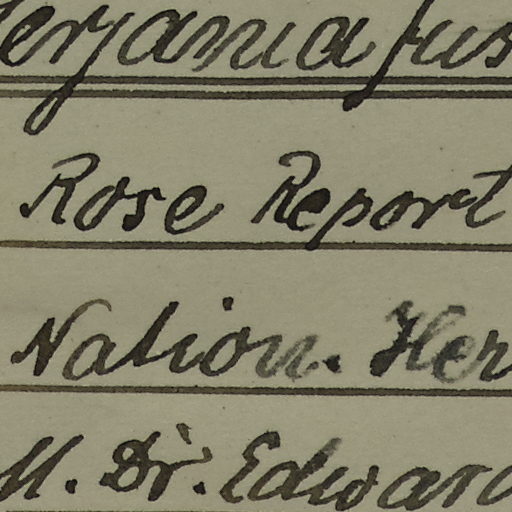 Rose Report
Nation. Her
M. Dr. Edward